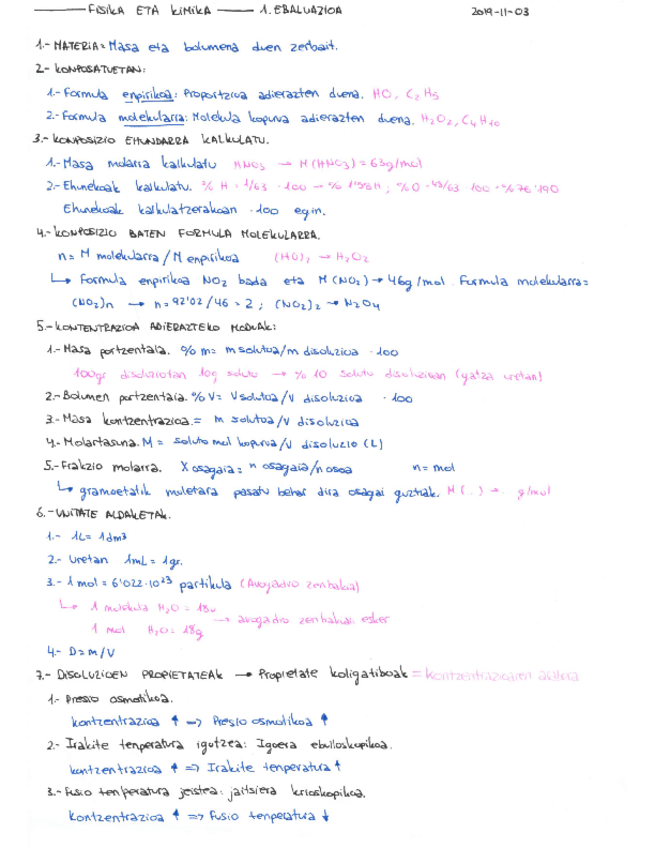 FISIKA ETA KIMIKA — 1. EBALUAZIOA 2019-11-03
1.- MATERIA = Masa eta bolumena duen zerbait.
2- KONPOSATUETAN:
1.- Formula enpirikoa: Proportzioa adierazten duena. HO, C2H5
2.- Formula molekularra: Molekula kopurua adierazten duena. H2O2, C4H10
3.- KONPOSIZIO EHUNDARRA KALKULATU.
1.- Masa molarra kalkulatu HNO3 → M(HNO3) = 63g/mol
2.- Ehunekoak kalkulatu. % H = 1/63 · 100 → % 1'58H ; % O = 48/63 · 100 = % 76'190
Ehunekoak kalkulatzerakoan · 100 egin.
4.- KONPOSIZIO BATEN FORMULA MOLEKULARRA.
n = M molekularra / M enpirikoa (HO)2 → H2O2
↳ Formula enpirikoa NO2 bada eta M(NO2) → 46g/mol. Formula molekularra =
(NO2)n → n = 92'02/46 = 2 ; (NO2)2 → N2O4
5.- KONTENTRAZIOA ADIERAZTEKO MODUAK:
1.- Masa portzentaia. % m = m solutoa/m disoluzioa · 100
100gr disoluziotan 10g soluto → % 10 soluto disoluzioan (gatza uretan)
2.- Bolumen portzentaia. % V = V solutoa/V disoluzioa · 100
3.- Masa kontzentrazioa. = m solutoa/V disoluzioa
4.- Molartasuna. M = soluto mol kopurua/V disoluzio (L)
5.- Frakzio molarra. X osagaia = n osagaia/n osoa n = mol
↳ gramoetatik moletara pasatu behar dira osagai guztiak. M(..) → .. g/mol
6.- UNITATE ALDAKETAK.
1.- 1L = 1dm3
2.- Uretan 1mL = 1gr.
3.- 1 mol = 6'022·10^23 partikula (Avogadro zenbakia)
↳ 1 molekula H2O = 18u
1 mol H2O = 18g → avogadro zenbakiari esker
4- D = m/V
7.- DISOLUZIOEN PROPIETATEAK → Propietate koligatiboak = kontzentrazioaren arabera
1.- Presio osmotikoa.
kontzentrazioa ↑ => Presio osmotikoa ↑
2.- Irakite tenperatura igotzea: Igoera ebulloskopikoa.
kontzentrazioa ↑ => Irakite tenperatura ↑
3.- Fusio tenperatura jeistea: jaitsiera krioskopikoa.
kontzentrazioa ↑ => Fusio tenperatura ↓